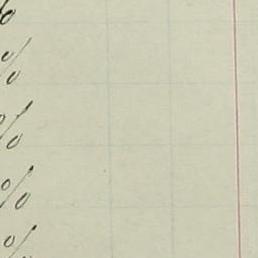 %
%
%
%
%